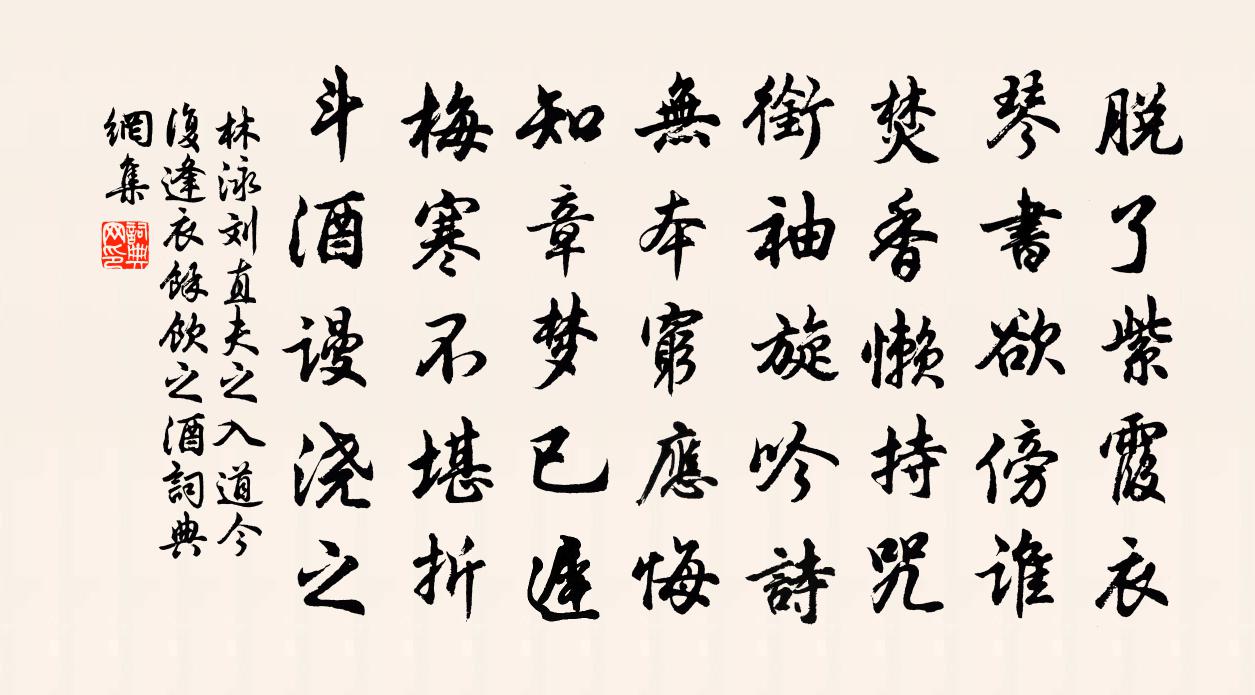 脱了紫霞衣
琴書欲傍谁
焚香懒持咒
銜袖旋吟詩
無本窮應悔
知章梦已遅
梅寒不堪折
斗酒谩浇之
林泳刘直夫之入道今
復逢衣餘飲之酒詞典
網集
詞典
网印